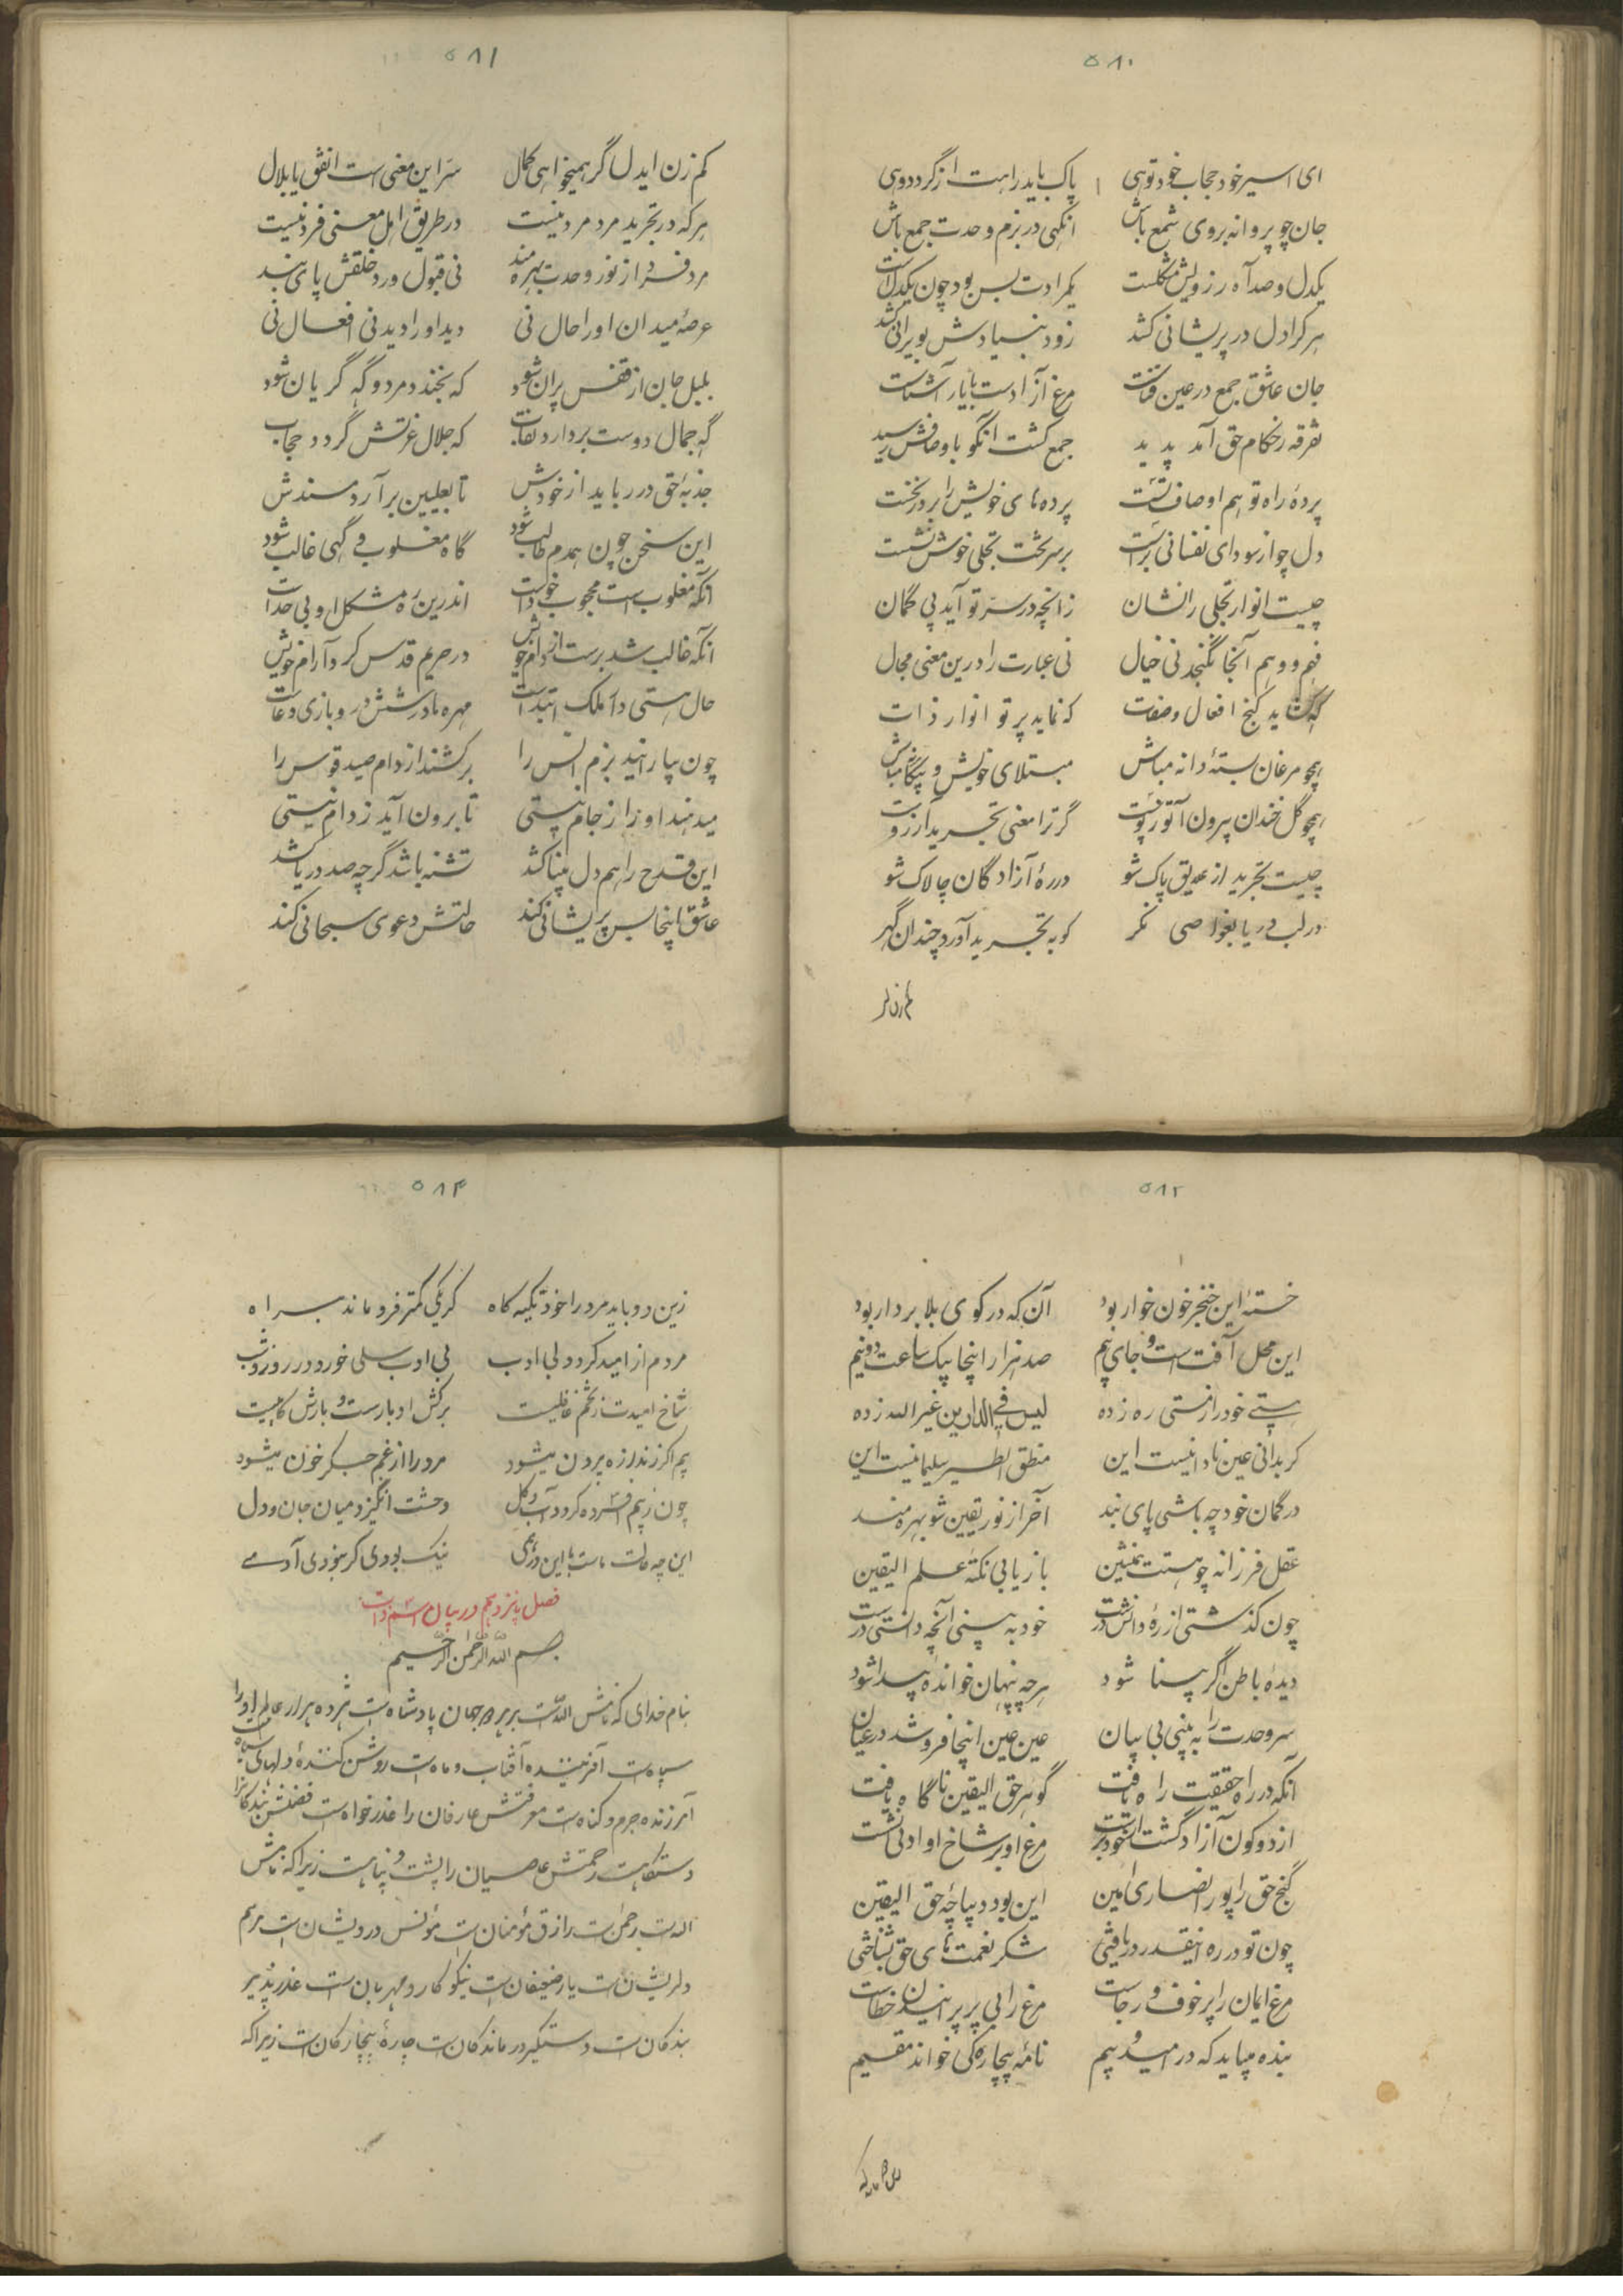 ۵۸۰
ای اسیر خود حجاب خود توهی پاک باید راهت از گرد دوهی
جان چو پروانه بروی شمع باش انگهی در بزم وحدت جمع باش
یکدل و صد آه رزو بس مشکلست یکمرادت بس بود چون یکدلت
هر کرا دل در پریشانی کشد زود بنیادش بویرانی کشد
جان عاشق جمع در عین فناست مرغ آزادست با یار آشناست
تفرقه ز حکام حق آمد پدید جمع گشت آنکو باوصافش رسید
پردهٔ راه تو هم اوصاف تست پرده های خویش را بر در نخست
دل چو از سودای نفسانی برست بر سر تخت تجلی خوش نشست
چیست انوار تجلی را نشان زانچه در سرّ تو آید بی گمان
فهم و وهم آنجا نگنجد نی خیال نی عبارت را درین معنی مجال
گه گشاید گنج افعال و صفات که نماید پرتو انوار ذات
همچو مرغان بستهٔ دانه مباش مبتلای خویش و بیگانه مباش
همچو گل خندان برون آ تو ز پوست گر ترا معنی تجرید آرزوست
چیست تجرید از علایق پاک شو در ره آزادگان چالاک شو
در لب دریا بغواصی نگر کو به تجرید آورد چندان گهر
کم زن ار
۵۸۱
کم زن ایدل گر همیخواهی کمال سرّ این معنی است انفق یا بلال
هر که در تجرید مرد مرد نیست در طریق اهل معنی فرد نیست
مرد فرد از نور وحدت بهره مند نی قبول و رد خلقش پای بند
عرصهٔ میدان او را حال نی دید او را دیدنی افعال نی
بلبل جان از قفس پران شود که بخندد مرد و گه گریان شود
گه جمال دوست بردارد نقاب که جلال عزتش گردد حجاب
جذبهٔ حق در رباید از خودش تا بعلیین برآرد مسندش
این سخن چون همدم طالب شود گاه مغلوب و گهی غالب شود
آنکه مغلوب است محجوب خداست اندرین ره مشکل او بی حداست
آنکه غالب شد برست از دام خویش در حریم قدس کرد آرام خویش
حال هستی دآ ملک ابتداست مهره با در ششدر و بازی دغاست
چون بیارانید بزم انس را برکشند از دام صید قوس را
میدهند او را ز جام نیستی تا برون آید ز دام نیستی
این قدح را هم دل بینا کشد تشنه باشد گرچه صد دریا کشد
عاشق اینجا بس پریشانی کند حالتش دعوی سبحانی کند
۵۸۲
خستهٔ این خنجر خون خوار بود آن که در کوی بلا بر دار بود
این محل آفت است و جای بیم صد هزار اینجا بیک ساعت دو نیم
هستی خود را ز مستی ره زده لیس فی الدارین غیر الله زده
گر بدانی عین نادانیست این منطق الطیر سلیمانیست این
در گمان خود چه باشی پای بند آخر از نور یقین شو بهره مند
عقل فرزانه چو هستت همنشین بازیابی نکتهٔ علم الیقین
چون گذشتی از ره دانش درست خود به بینی آنچه دانستی درست
دیدهٔ باطن اگر بینا شود هر چه پنهان خوانده پیدا شود
سر وحدت را به بینی بی بیان عین عین اینجا فرو شد در عیان
آنکه در راه حقیقت راه یافت گوهر حق الیقین ناگاه یافت
از دو کون آزاد گشت از خود برست مرغ او بر شاخ او ادنی نشست
گنج حق را پور انصاری امین این بود دیباچهٔ حق الیقین
چون تو در ره اینقدر دریافتی شکر نعمت های حق بشناختی
مرغ ایمان را پر خوف و رجاست مرغ را بی پر پرانیدن خطاست
بنده میباید که در امید و بیم نامهٔ بیچارگی خواند مقیم
۵۸۴
زین دو باید مرد را خود تکیه کاه کر یکی کمتر فرو ماند براه
مردم از امید کردد بی ادب بی ادب سلی خورد در روز و شب
شاخ امیدت ز تخم غافلیست برکش ادبارست و بارش کاهلیست
بیم اکر ز اندازه بیرون میشود مرد را از غم جکر خون میشود
چون ز بیم افسرده کردد آب و کل وحشت انگیزد میان جان و دل
این چه حالت ماست با این درهمی نیک بودی کر نبودی آدمے
فصل پانزدهم در بیان اسم ذات
بسم الله الرحمن الرحیم
بنام خدای که نامش الله است بر هر دو جهان پادشاه است هژده هزار عالم او را
سپاه است آفریننده آفتاب و ماه است روشن کنندهٔ دلهای سیاه است
آمرزنده جرم و کناه است معرفتش عارفان را عذرخواه است فضلش بندکانرا
دستکاه است رحمتش عاصیان را پشت و پناه است زیرا که نامش
اله است رحمن است رازق مؤمنان است مؤنس درویشان است مرهم
دلریشان است یار ضعیفان است نیکو کار و مهربان است عذر پذیر
بندکان است دستگیر درماندکان است چارهٔ بیچارکان است زیرا که